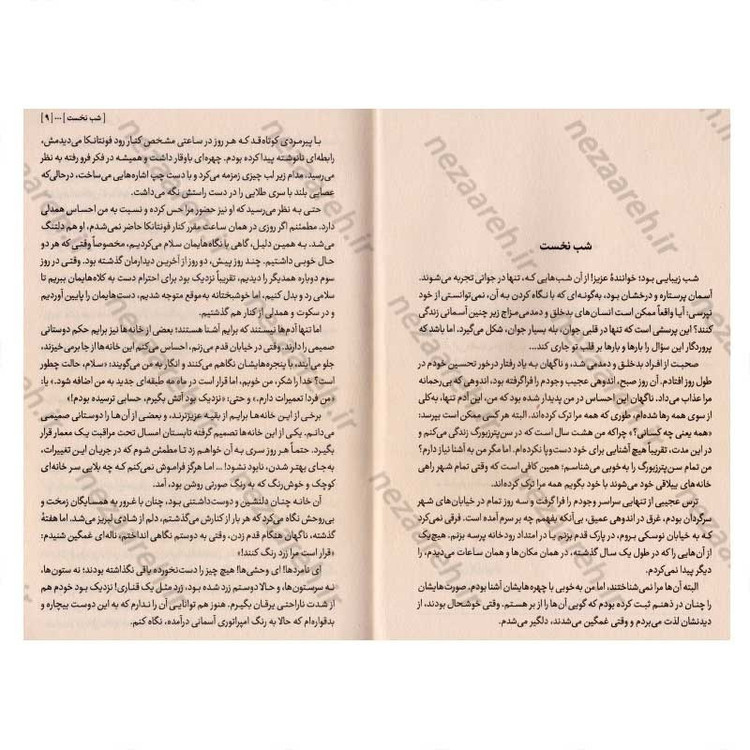 شب نخست
شب زیبایی بود؛ خوانندهٔ عزیز! از آن شب‌هایی که، تنها در جوانی تجربه می‌شوند.
آسمان پرستاره و درخشان بود، به‌گونه‌ای که با نگاه کردن به آن، نمی‌توانستی از خود
نپرسی: آیا واقعاً ممکن است انسان‌های بدخلق و دمدمی‌مزاج زیر چنین آسمانی زندگی
کنند؟ این پرسشی است که تنها در قلبی جوان، بله بسیار جوان، شکل می‌گیرد. اما باشد که
پروردگار این سؤال را بارها و بارها بر قلب تو جاری کند...
صحبت از افراد بدخلق و دمدمی شد، و ناگهان به یاد رفتار درخور تحسین خودم در
طول روز افتادم. آن روز صبح، اندوهی عجیب وجودم را فراگرفته بود، اندوهی که بی‌رحمانه
مرا عذاب می‌داد. ناگهان این احساس در من پدیدار شده بود که من، این آدم تنها، به‌کلی
از سوی همه رها شده‌ام، طوری که همه مرا ترک کرده‌اند. البته هر کسی ممکن است بپرسد:
«همه یعنی چه کسانی؟» چراکه من هشت سال است که در سن‌پترزبورگ زندگی می‌کنم و
در این مدت، تقریباً هیچ آشنایی برای خود دست‌وپا نکرده‌ام. اما مگر من به آشنا نیاز دارم؟
من تمام سن‌پترزبورگ را به‌خوبی می‌شناسم؛ همین کافی است که وقتی تمام شهر راهی
خانه‌های ییلاقی خود می‌شوند با خود بگویم همه مرا ترک کرده‌اند.
ترس عجیبی از تنهایی سراسر وجودم را فرا گرفت و سه روز تمام در خیابان‌های شهر
سرگردان بودم، غرق در اندوهی عمیق، بی‌آنکه بفهمم چه بر سرم آمده است. فرقی نمی‌کرد
که به خیابان نوسکی بروم، در پارک قدم بزنم یا در امتداد رودخانه پرسه بزنم. هیچ‌یک
از آن‌هایی را که در طول یک سال گذشته، در همان مکان‌ها و همان ساعات می‌دیدم، را
دیگر پیدا نمی‌کردم.
البته آن‌ها مرا نمی‌شناختند، اما من به‌خوبی با چهره‌هایشان آشنا بودم. صورت‌هایشان
را چنان در ذهنم ثبت کرده بودم که گویی آن‌ها را از بر هستم. وقتی خوشحال بودند، از
دیدنشان لذت می‌بردم و وقتی غمگین می‌شدند، دلگیر می‌شدم.
[ شب نخست ] ... [ ۹ ]
با پیرمردی کوتاه‌قد که هر روز در ساعتی مشخص کنار رود فونتانکا می‌دیدمش،
رابطه‌ای نانوشته پیدا کرده بودم. چهره‌ای باوقار داشت و همیشه در فکر فرو رفته به نظر
می‌رسید. مدام زیر لب چیزی زمزمه می‌کرد و با دست چپ اشاره‌هایی می‌ساخت، درحالی‌که
عصایی بلند با سری طلایی را در دست راستش نگه می‌داشت.
حتی به نظر می‌رسید که او نیز حضور مرا حس کرده و نسبت به من احساس همدلی
دارد. مطمئنم اگر روزی در همان ساعت مقرر کنار فونتانکا حاضر نمی‌شدم، او هم دلتنگ
می‌شد. به همین دلیل، گاهی با نگاه‌هایمان سلام می‌کردیم، مخصوصاً وقتی که هر دو
حال خوبی داشتیم. چند روز پیش، دو روز از آخرین دیدارمان گذشته بود. وقتی در روز
سوم دوباره همدیگر را دیدیم، تقریباً نزدیک بود برای احترام دست به کلاه‌هایمان ببریم تا
سلامی رد و بدل کنیم، اما خوشبختانه به‌موقع متوجه شدیم، دست‌هایمان را پایین آوردیم
و در سکوت و همدلی از کنار هم گذشتیم.
اما تنها آدم‌ها نیستند که برایم آشنا هستند؛ بعضی از خانه‌ها نیز برایم حکم دوستانی
صمیمی را دارند. وقتی در خیابان قدم می‌زنم، احساس می‌کنم این خانه‌ها از جا برمی‌خیزند،
جلو می‌آیند، با پنجره‌هایشان نگاهم می‌کنند و انگار به من می‌گویند: «سلام، حالت چطور
است؟ خدا را شکر، من خوبم، اما قرار است در ماه مه طبقه‌ای جدید به من اضافه شود.» یا:
«من فردا تعمیرات دارم.» و حتی: «نزدیک بود آتش بگیرم، حسابی ترسیده بودم!»
برخی از این خانه‌ها برایم از بقیه عزیزترند، و بعضی از آن‌ها را دوستانی صمیمی
می‌دانم. یکی از این خانه‌ها تصمیم گرفته تابستان امسال تحت مراقبت یک معمار قرار
بگیرد. حتماً هر روز سری به آن خواهم زد تا مطمئن شوم که در جریان این تغییرات،
به‌جای بهتر شدن، نابود نشود! ... اما هرگز فراموش نمی‌کنم که چه بلایی سر خانه‌ای
کوچک و خوش‌رنگ که به رنگ صورتی روشن بود، آمد.
آن خانه چنان دلنشین و دوست‌داشتنی بود، چنان با غرور به همسایگان زمخت و
بی‌روحش نگاه می‌کرد که هر بار از کنارش می‌گذشتم، دلم از شادی لبریز می‌شد. اما هفتهٔ
گذشته، ناگهان هنگام قدم زدن، وقتی به دوستم نگاهی انداختم، ناله‌ای غمگین شنیدم:
«قرار است مرا زرد رنگ کنند!»
ای نامردها! ای وحشی‌ها! هیچ چیز را دست‌نخورده باقی نگذاشته بودند؛ نه ستون‌ها،
نه سرستون‌ها، و حالا دوستم زرد شده بود، زرد مثل یک قناری! نزدیک بود خودم هم
از شدت ناراحتی یرقان بگیرم. هنوز هم توانایی آن را ندارم که به این دوست بیچاره و
بدقواره‌ام که حالا به رنگ امپراتوری آسمانی درآمده، نگاه کنم.
nezaareh.ir